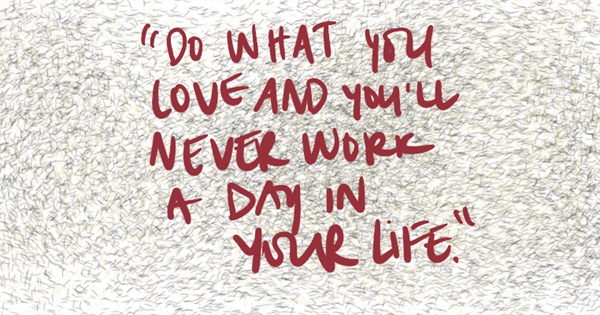 “DO WHAT YOU
LOVE AND YOU'LL
NEVER WORK
A DAY IN
YOUR LiFE.”